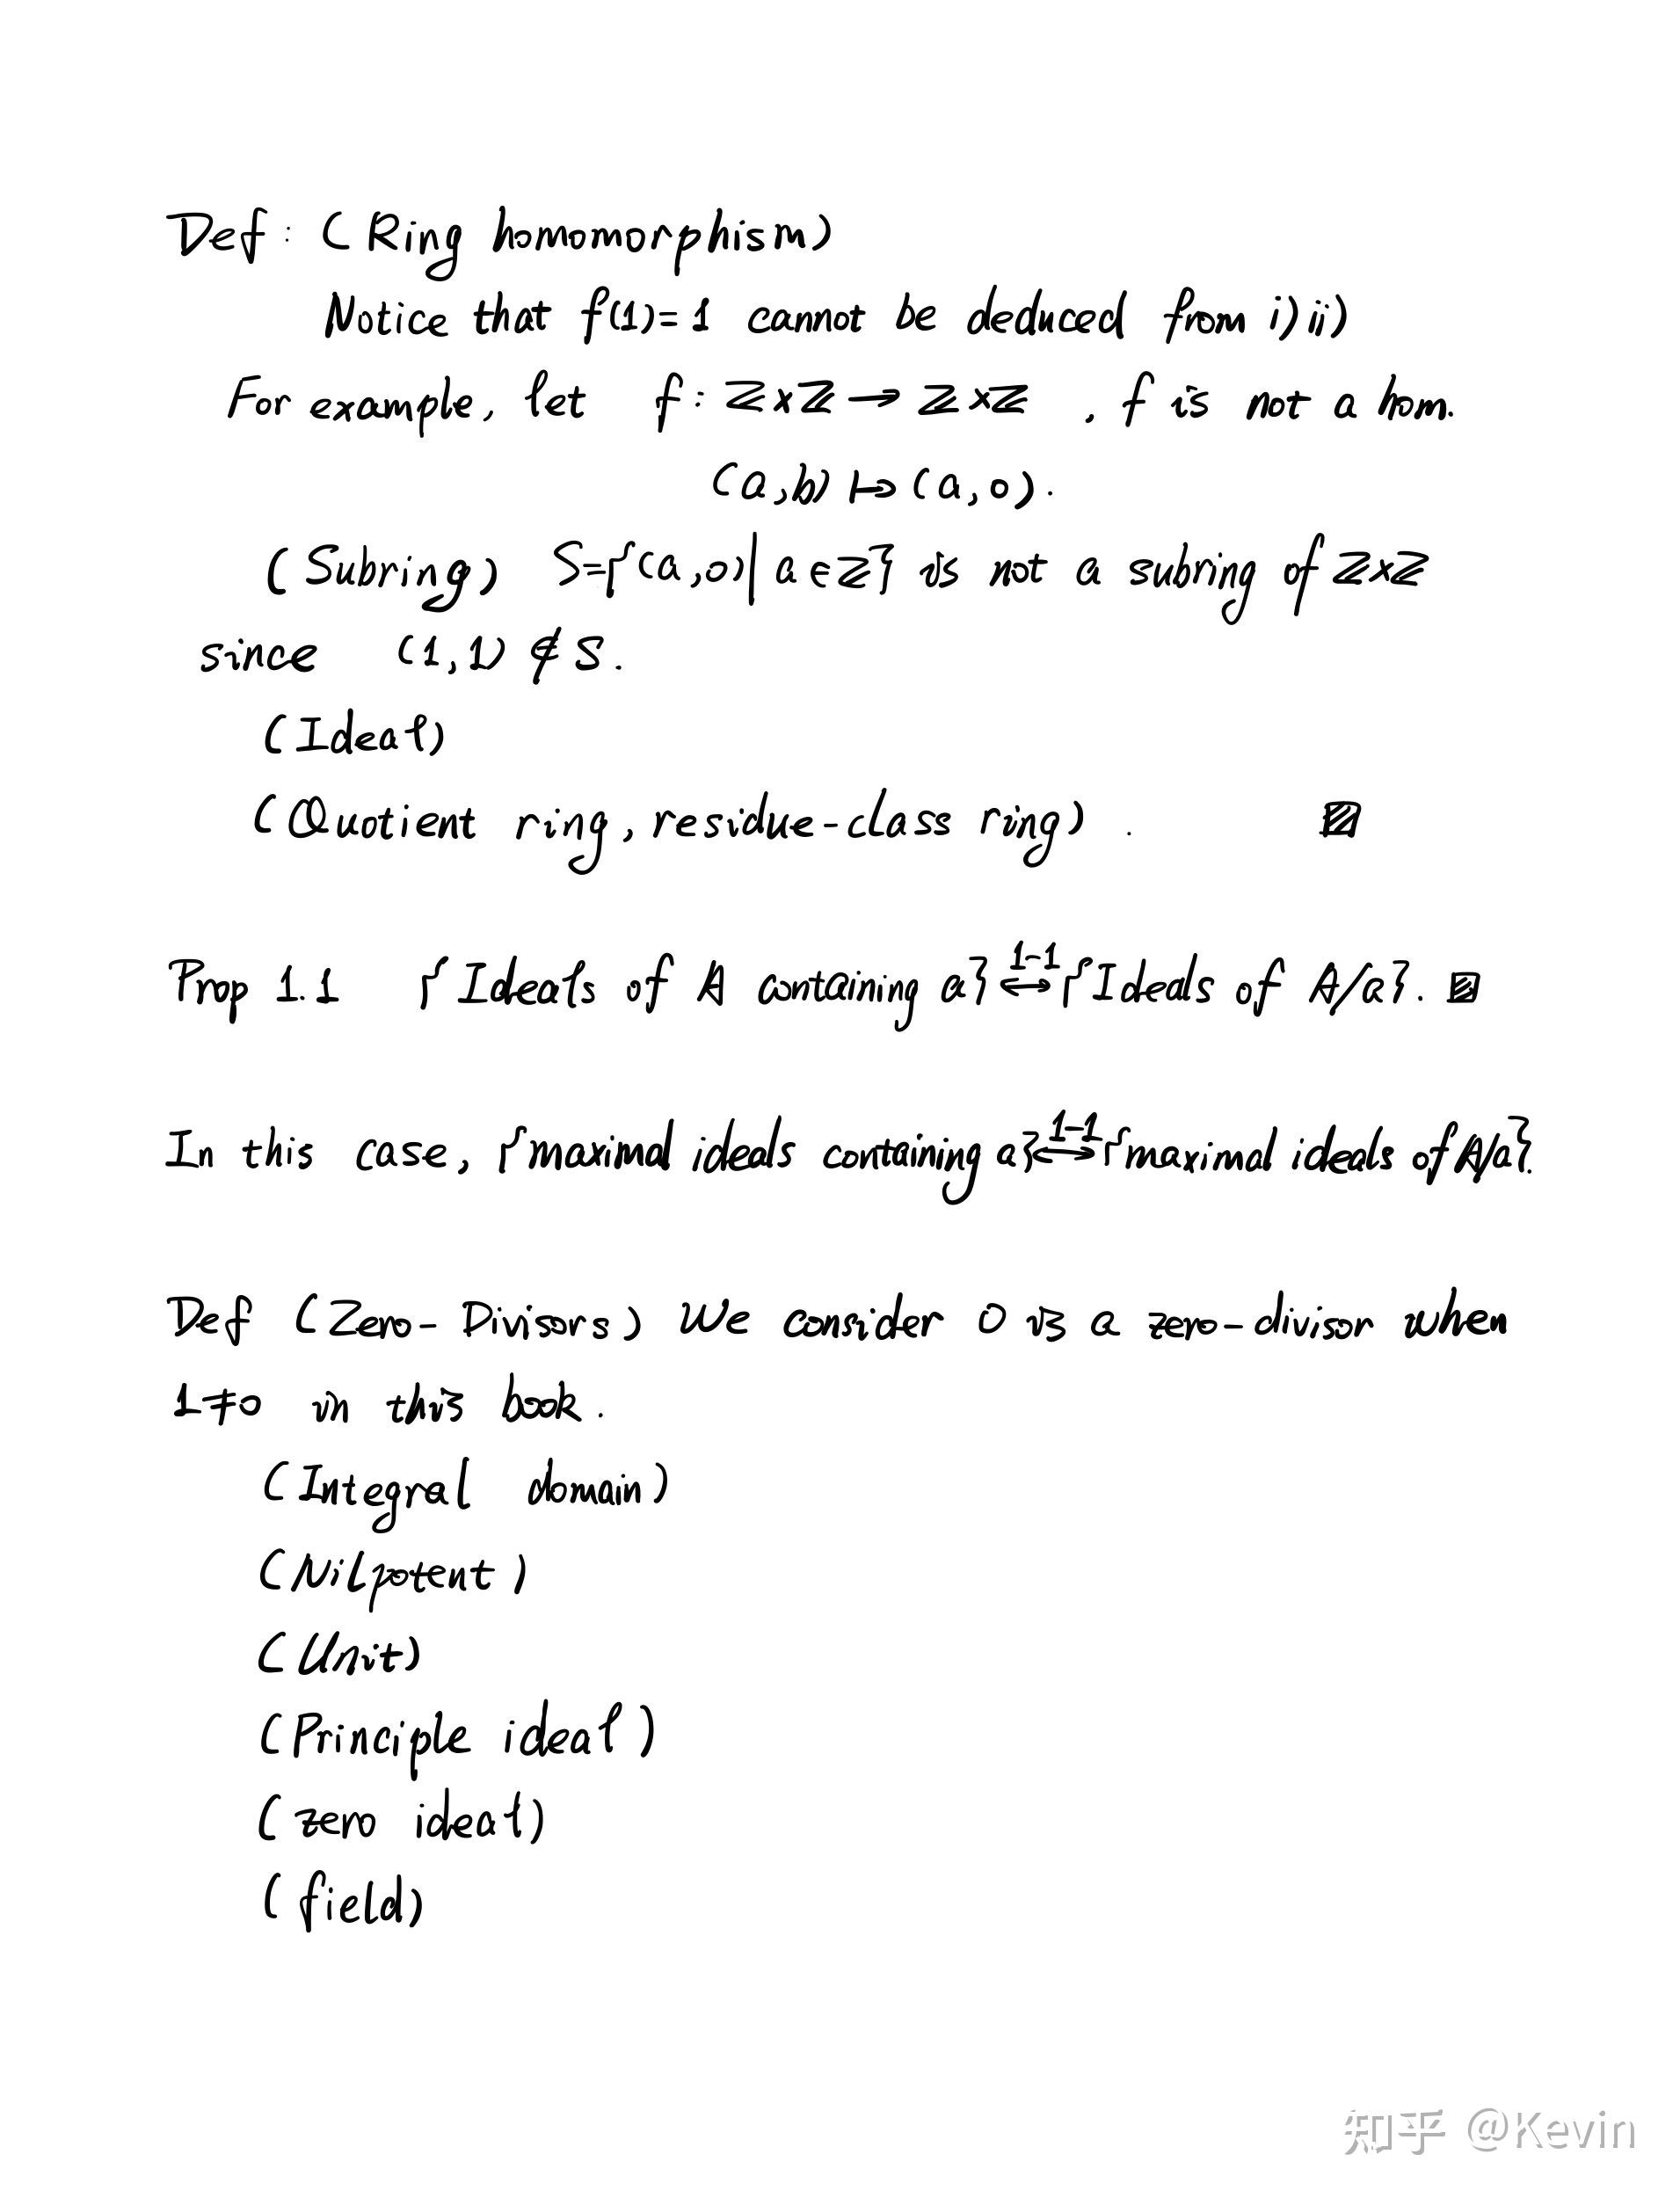 Def: (Ring homomorphism)
Notice that f(1)=1 cannot be deduced from i) ii)
For example, let f: ℤ×ℤ → ℤ×ℤ , f is not a hom.
(a,b) ↦ (a,0).
(Subring) S={(a,0)|a∈ℤ} is not a subring of ℤ×ℤ
since (1,1) ∉ S.
(Ideal)
(Quotient ring, residue-class ring) .
Prop 1.1 {Ideals of A containing a} 1-1 ↔ {Ideals of A/a}.
In this case, {maximal ideals containing a} 1-1 ↔ {maximal ideals of A/a}.
Def (Zero-Divisors) We consider 0 is a zero-divisor when
1≠0 in this book.
(Integral domain)
(Nilpotent)
(Unit)
(Principle ideal)
(zero ideal)
(field)
知乎 @Kevin